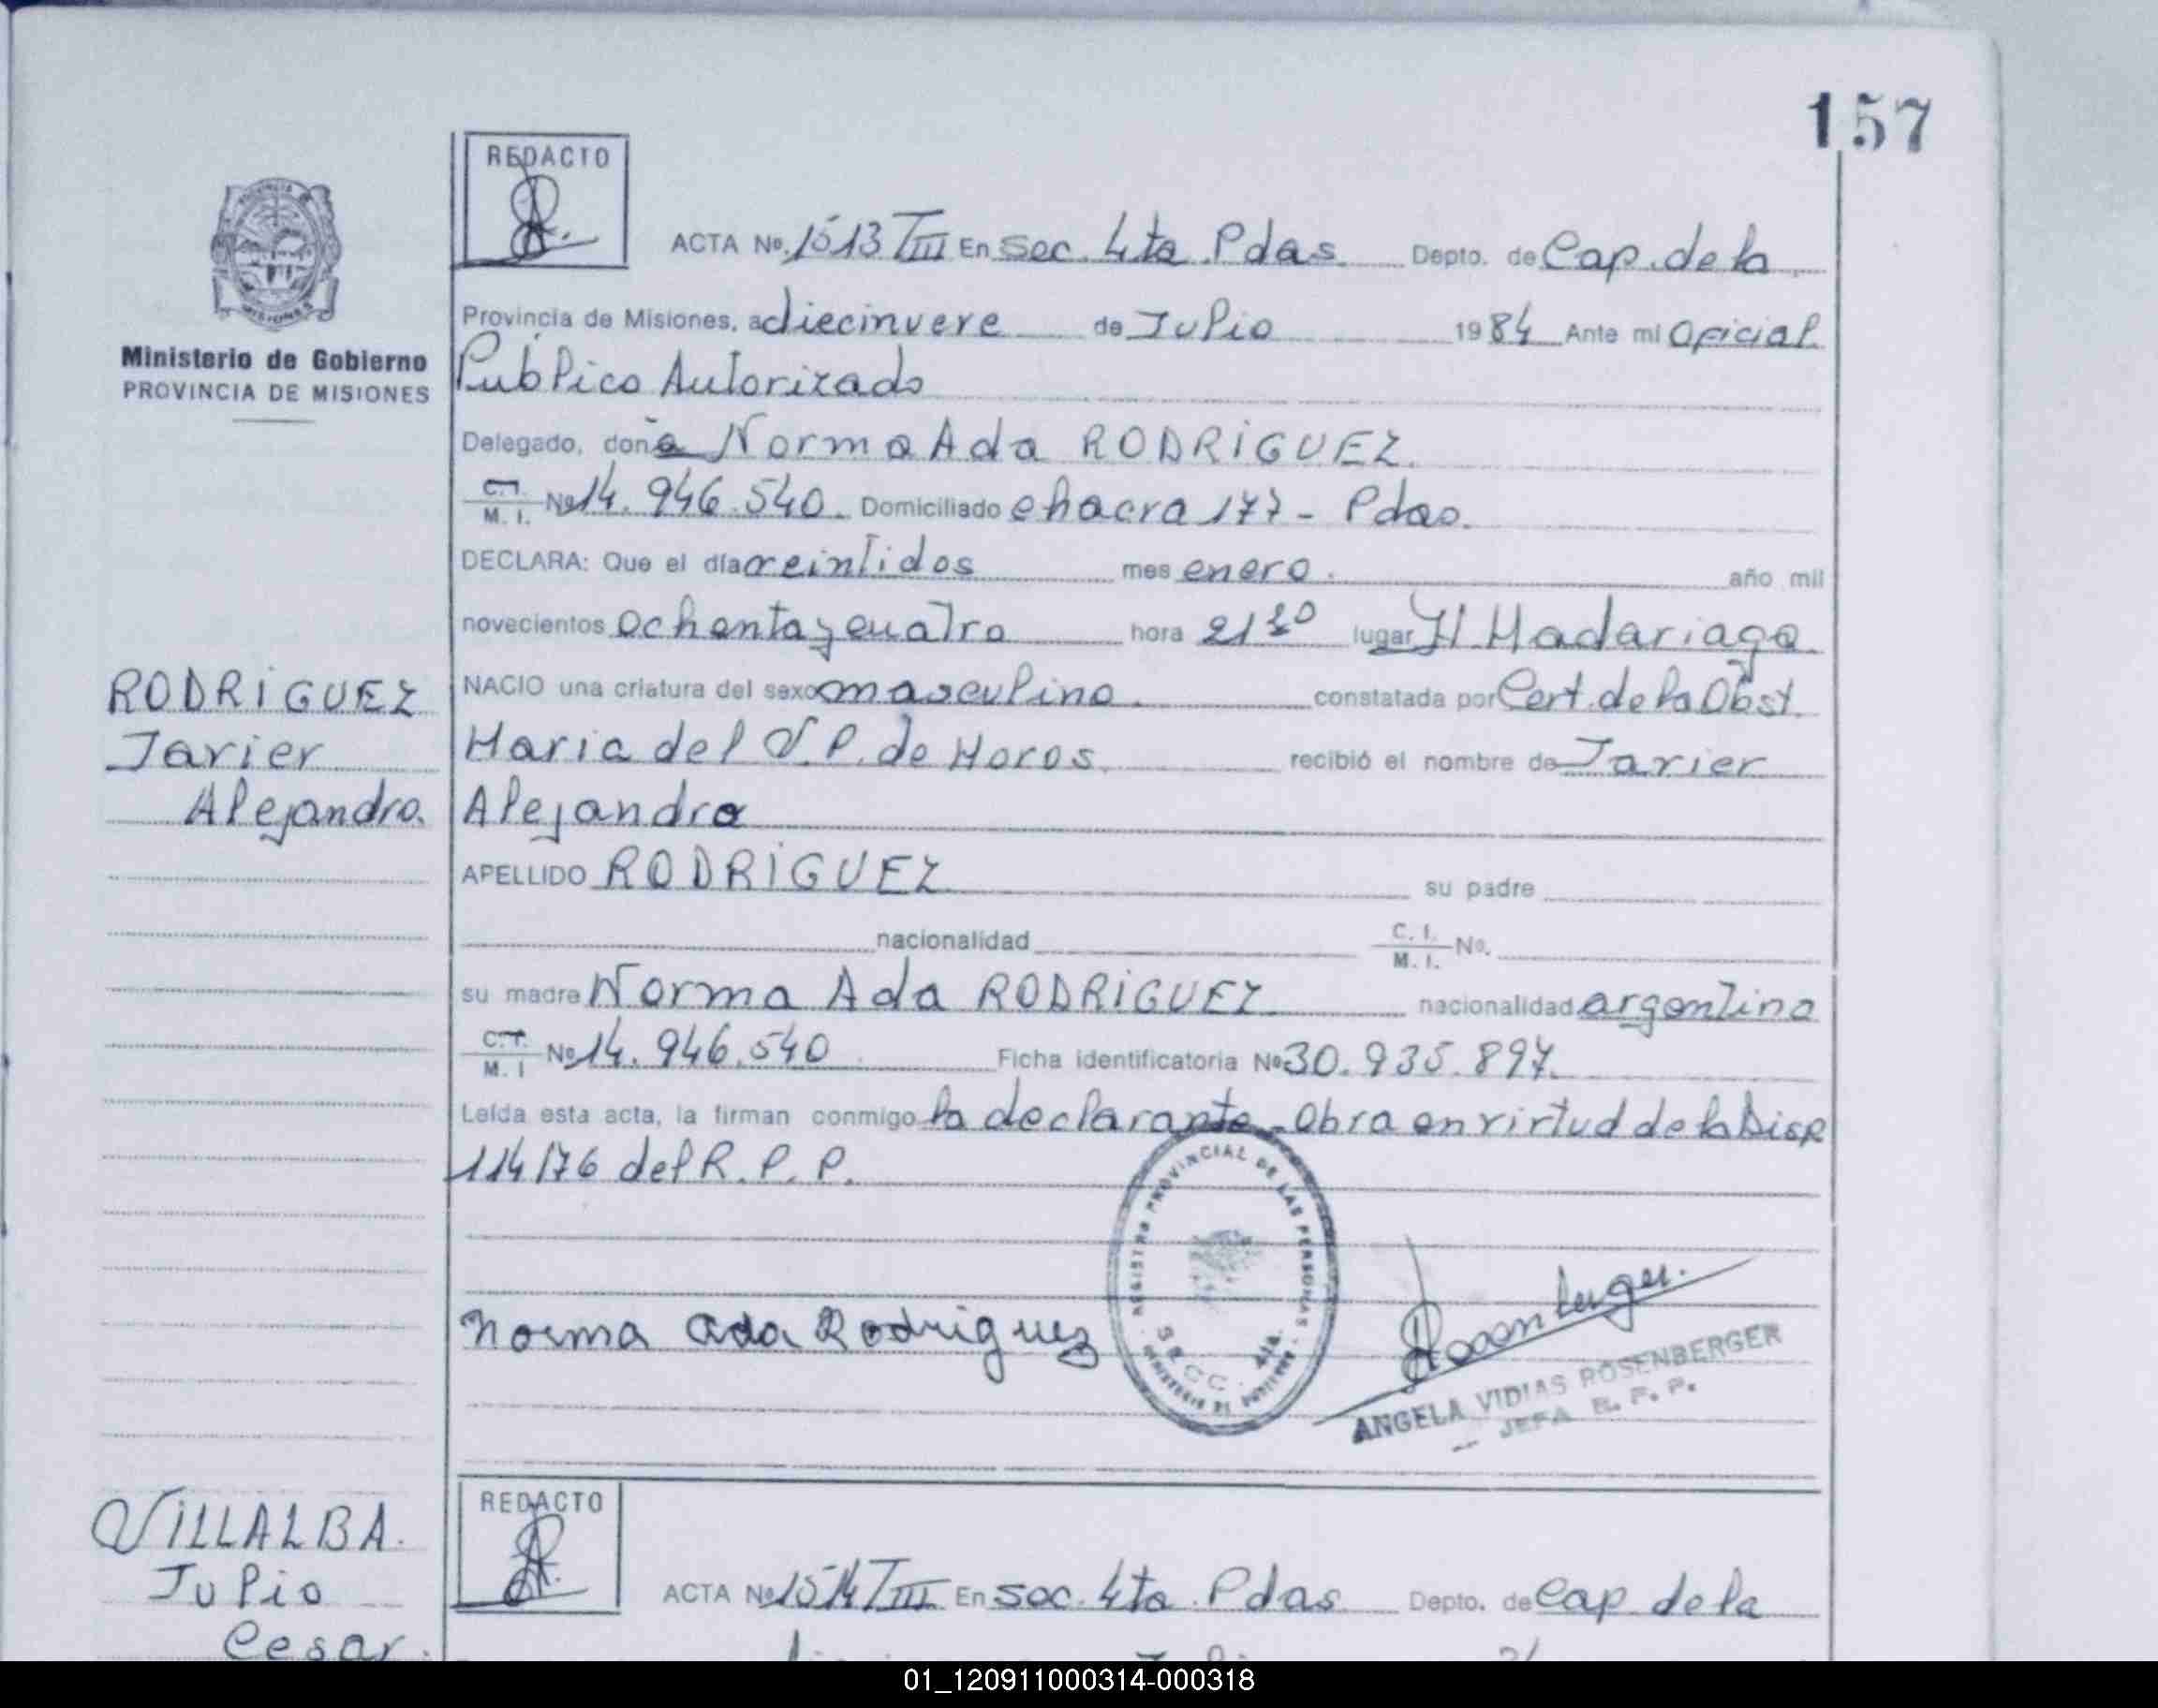 157
REDACTO
ACTA No. 1513 T III En Sec. 4ta Pdas. Depto. de Cap. de la
Ministerio de Gobierno
PROVINCIA DE MISIONES
Provincia de Misiones, a diecinueve de Julio 1984 Ante mi Oficial
Publico Autorizado
Delegado, doña Norma Ada RODRIGUEZ.
C.I. M. I. No 14.946.540. Domiciliado chacra 177 - Pdas.
DECLARA: Que el día veintidos mes enero. año mil
novecientos ochenta y cuatro hora 21 lugar H. Madariaga
RODRIGUEZ
Javier
Alejandro.
NACIO una criatura del sexo masculino. constatada por Cert. de la Obst.
Maria del V. P. de Moros. recibió el nombre de Javier
Alejandro
APELLIDO RODRIGUEZ su padre
nacionalidad C. I. M. I. No.
su madre Norma Ada RODRIGUEZ nacionalidad argentina
C.I. M. I No 14.946.540 Ficha identificatoria No 30.935.897.
Leída esta acta, la firman conmigo la declarante. Obra en virtud de la Disp
114/76 del R. P. P.
REGISTRO PROVINCIAL DE LAS PERSONAS
MINISTERIO DE GOBIERNO
Norma Ada Rodriguez
Rosenberger.
ANGELA VIDIAS ROSENBERGER
JEFA R. P. P.
VILLALBA.
Julio
Cesar.
REDACTO
ACTA No 1514 T III En Sec. 4ta Pdas Depto. de Cap. de la
01_120911000314-000318